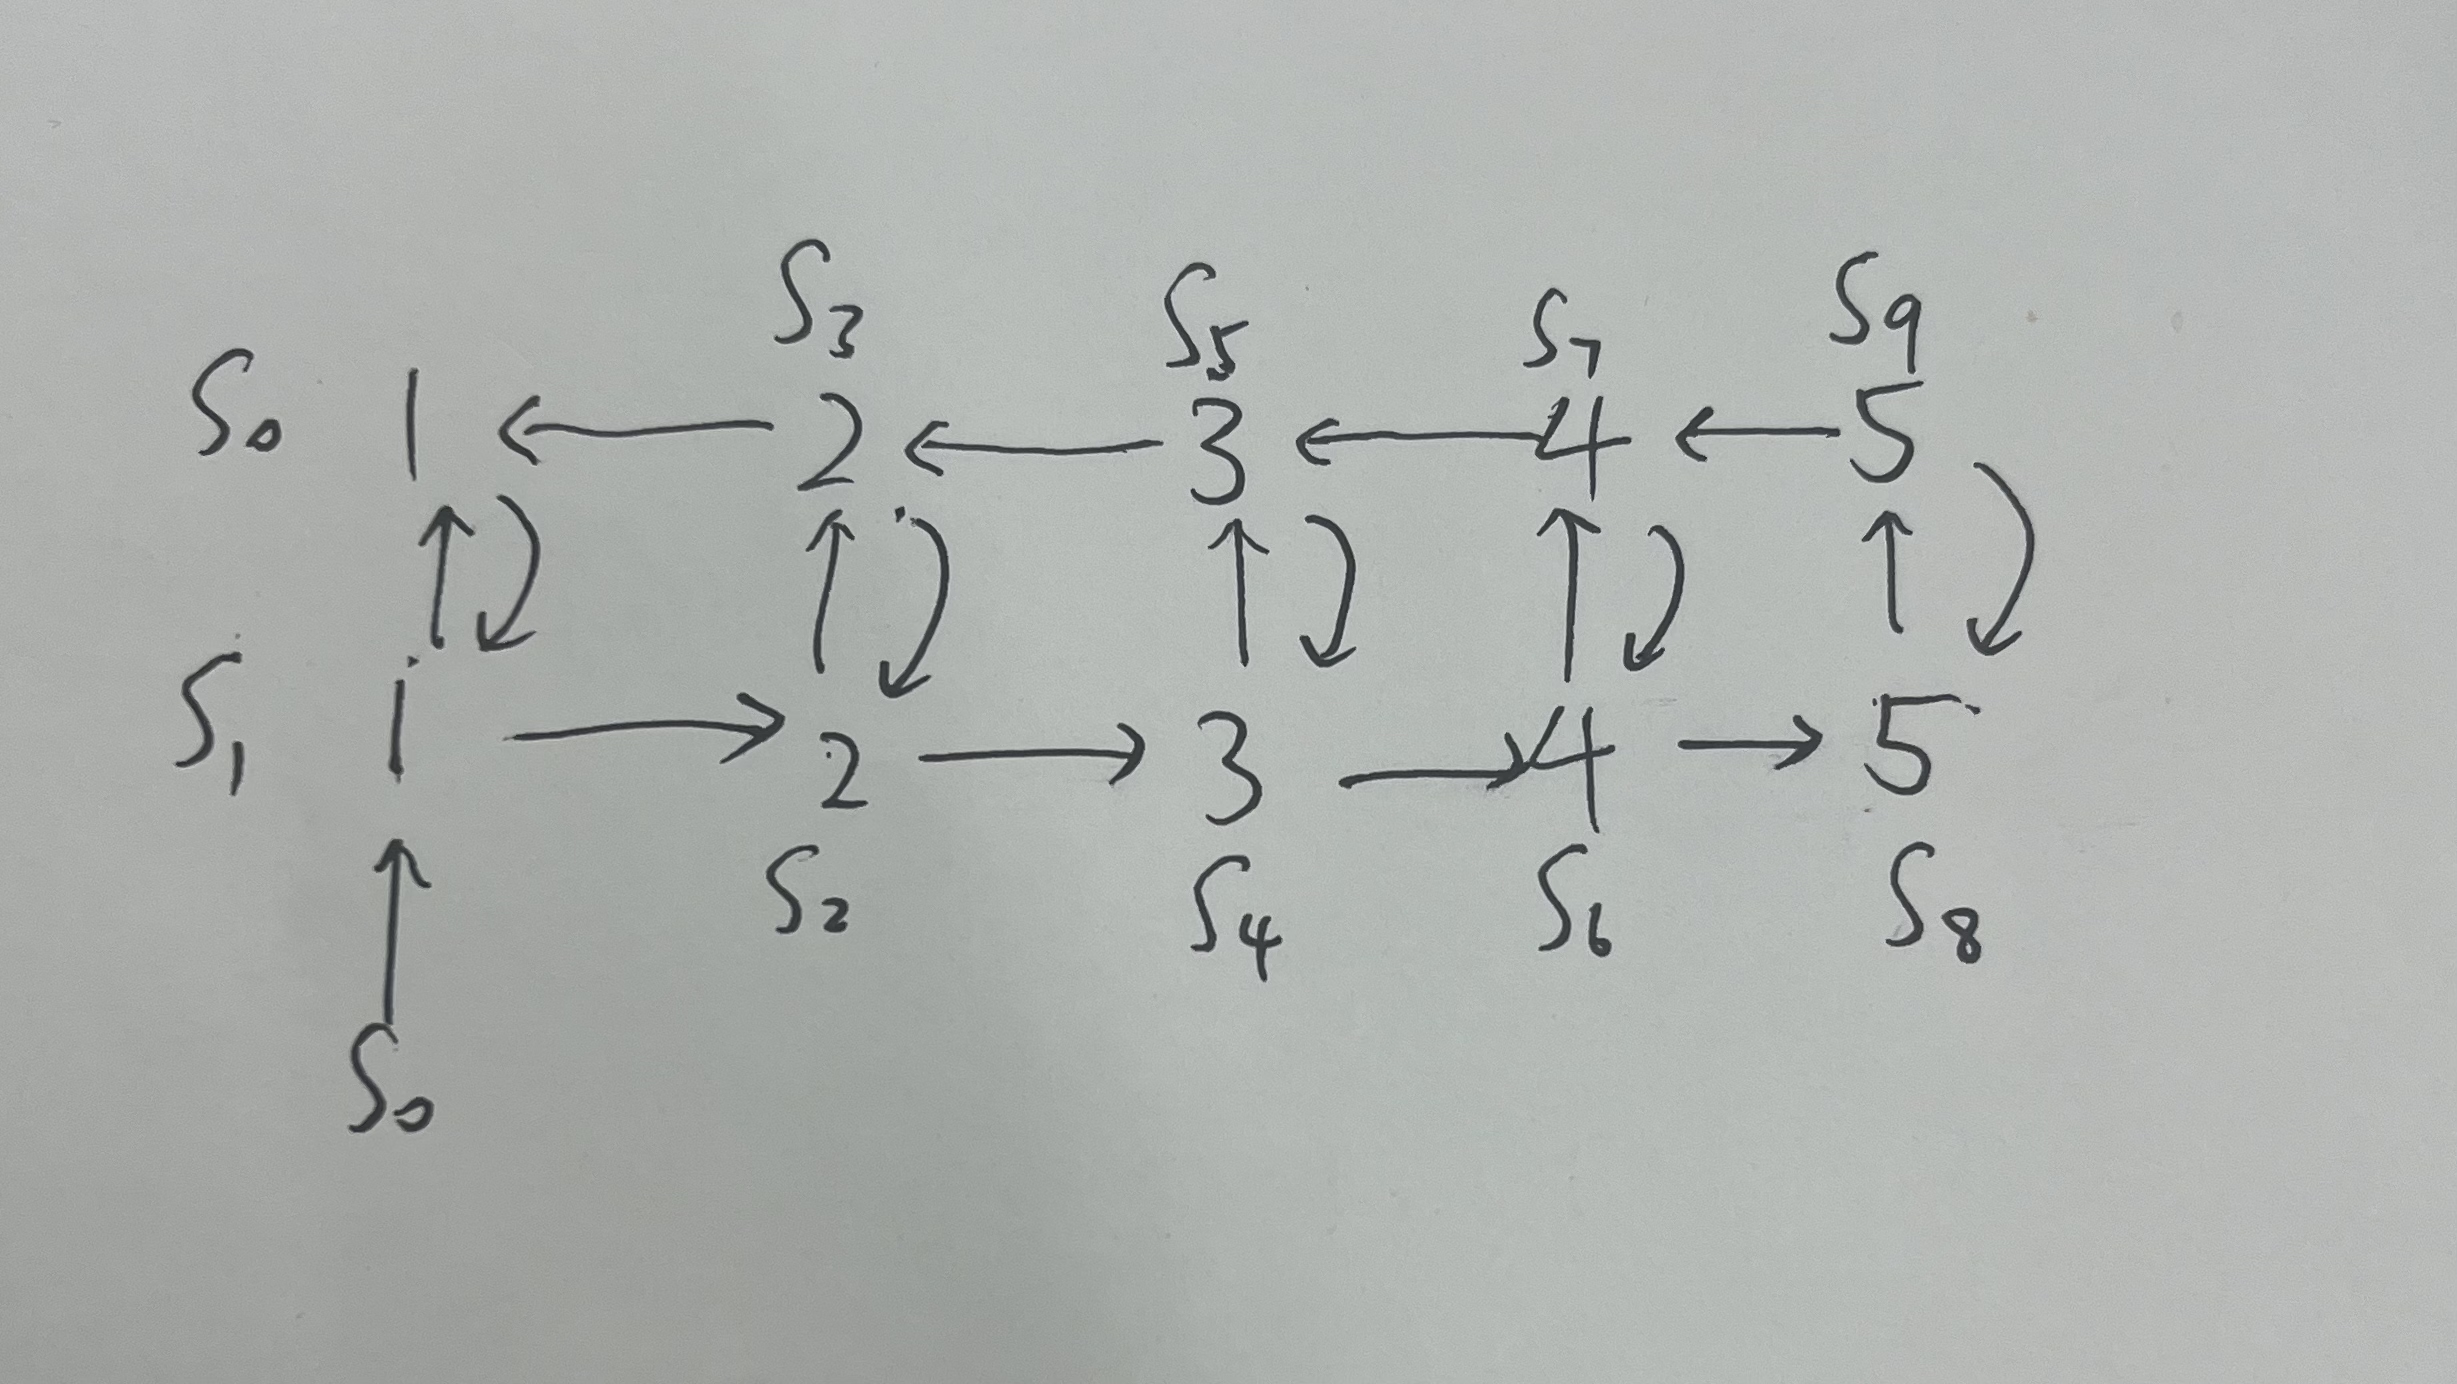 S3 S5 S7 S9
S0 1 ← 2 ← 3 ← 4 ← 5
S1 1 → 2 → 3 → 4 → 5
S2 S4 S6 S8
S0